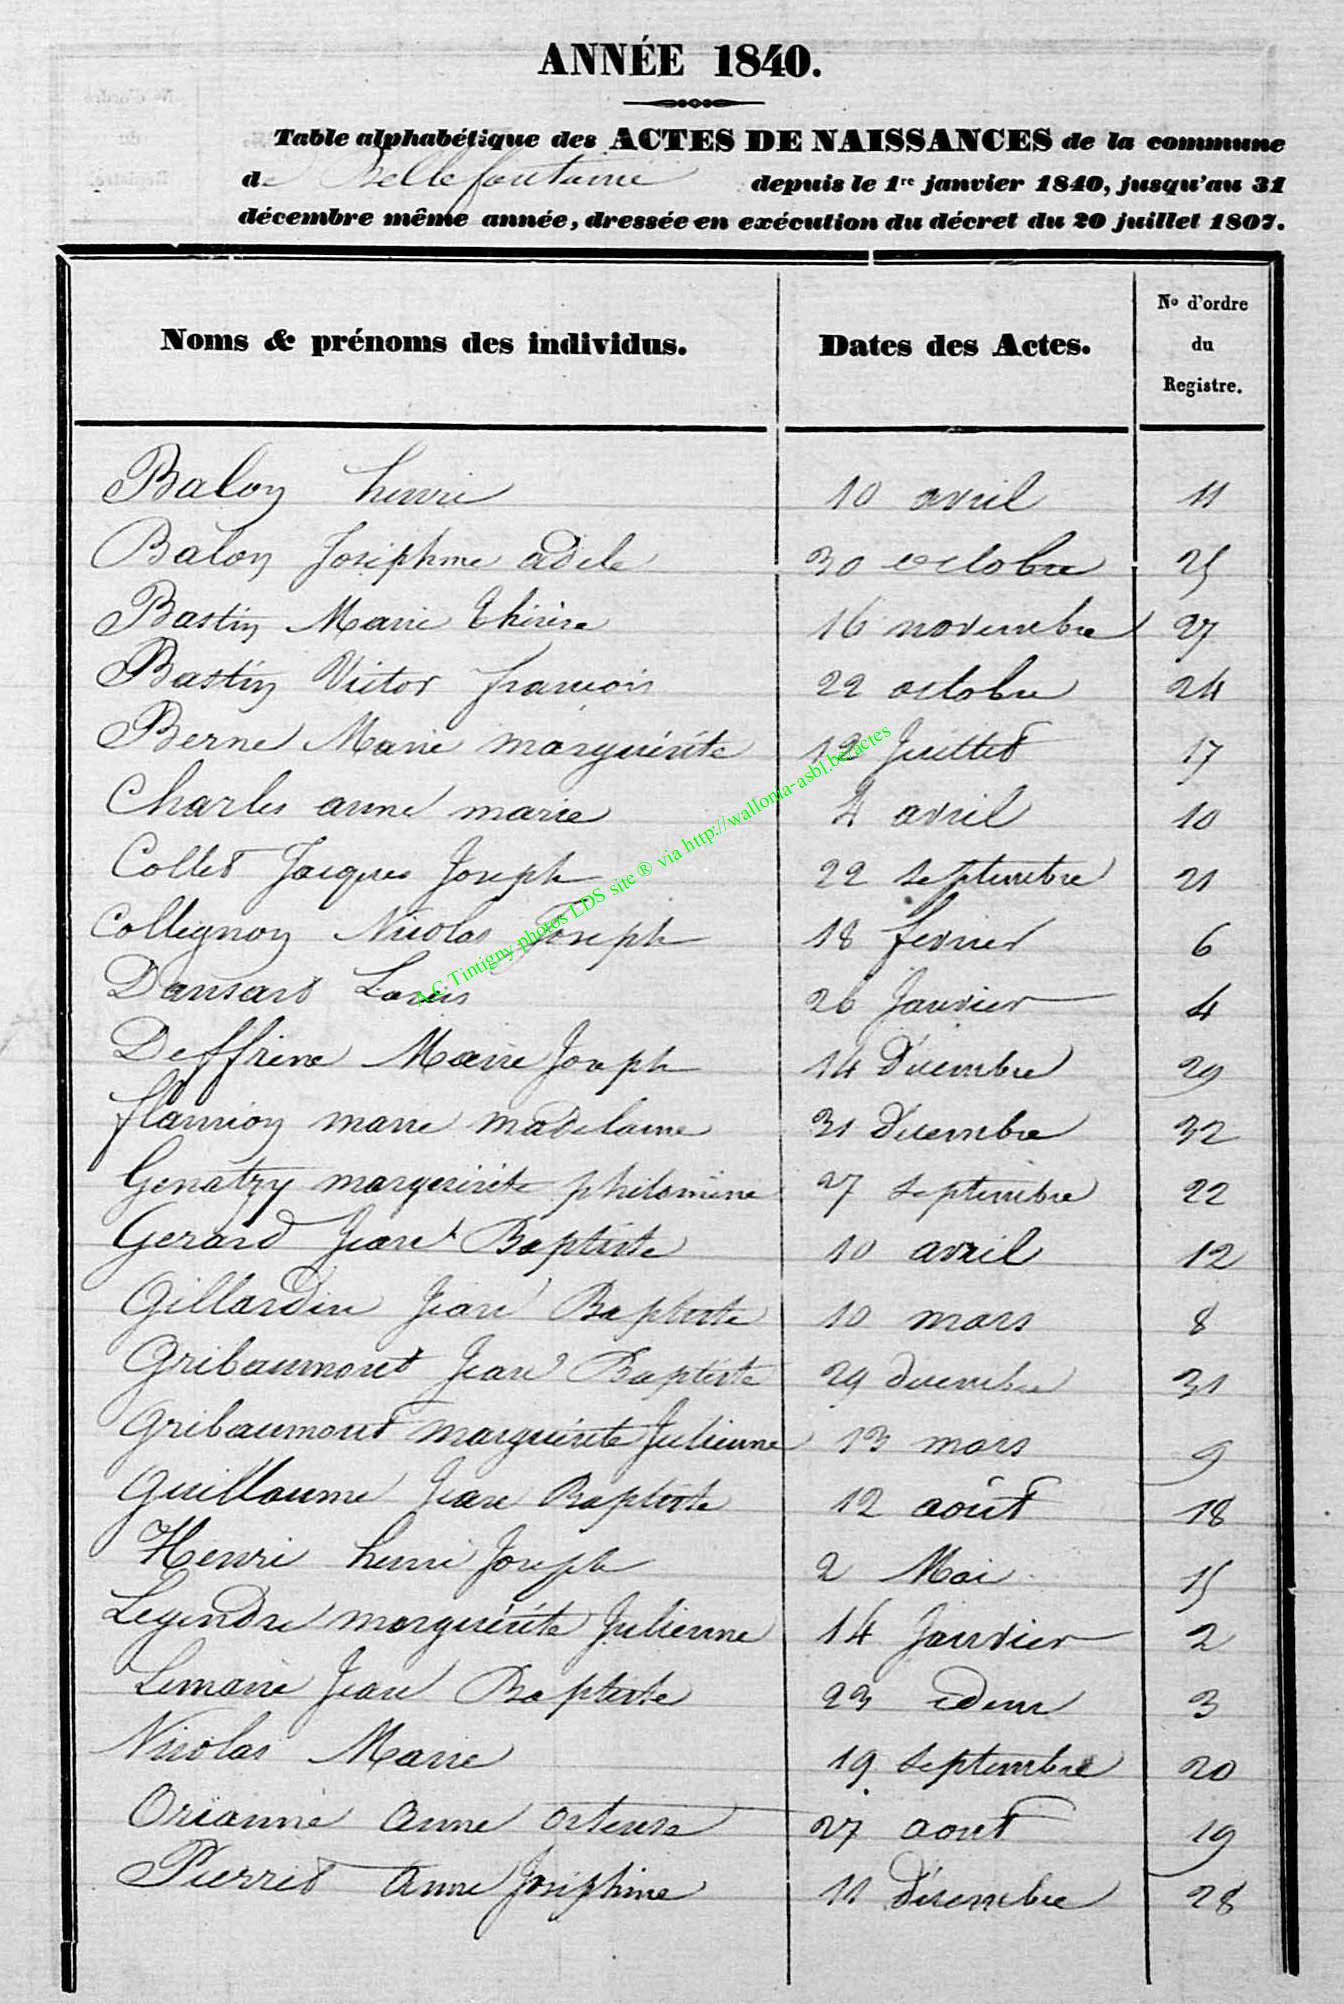 ANNÉE 1840.
Table alphabétique des ACTES DE NAISSANCES de la commune
de Bellefontaine depuis le 1re janvier 1840, jusqu'au 31
décembre même année, dressée en exécution du décret du 20 juillet 1807.
Noms & prénoms des individus. Dates des Actes. No d'ordre du Registre.
Balon henri 10 avril 11
Balon Josephine adele 30 octobre 25
Bastin Marie thérèse 16 novembre 27
Bastin Victor françois 22 octobre 24
Berne Marie marguérite 12 Juillet 17
Charles anne marie 4 avril 10
Collet Jacques Joseph 22 septembre 21
Collignon Nicolas Joseph 18 fevrier 6
Dansart Louis 26 Janvier 4
Deffrene Marie Joseph 14 Décembre 29
flamion marie madelaine 31 Decembre 32
Genatzy marguerite philomine 27 septembre 22
Gerard Jean Baptiste 10 avril 12
Gillardin Jean Baptiste 10 mars 8
Gribaumont Jean Baptiste 29 decembre 31
Gribaumont marguérite Julienne 13 mars 9
Guillaume Jean Baptiste 12 août 18
Henri henri Joseph 2 Mai 15
Legendre marguérite Julienne 14 Janvier 2
Lemaire Jean Baptiste 23 idem 3
Nicolas Marie 19 septembre 20
Orianne anne ortense 27 aout 19
Pierret anne Joséphine 11 Décembre 28
A.C. Tintigny photos LDS site ® via http://wallonia-asbl.be/actes